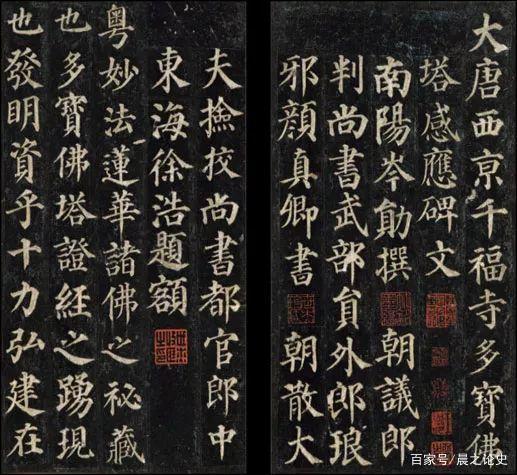 大唐西京千福寺多寶佛
塔感應碑文
南陽岑勛撰 朝議郎
判尚書武部員外郎琅
邪顏真卿書 朝散大
夫撿挍尚書都官郎中
東海徐浩題額
粵妙法蓮華諸佛之祕藏
也多寶佛塔證經之踴現
也發明資乎十力弘建在
百家号/晨之论史